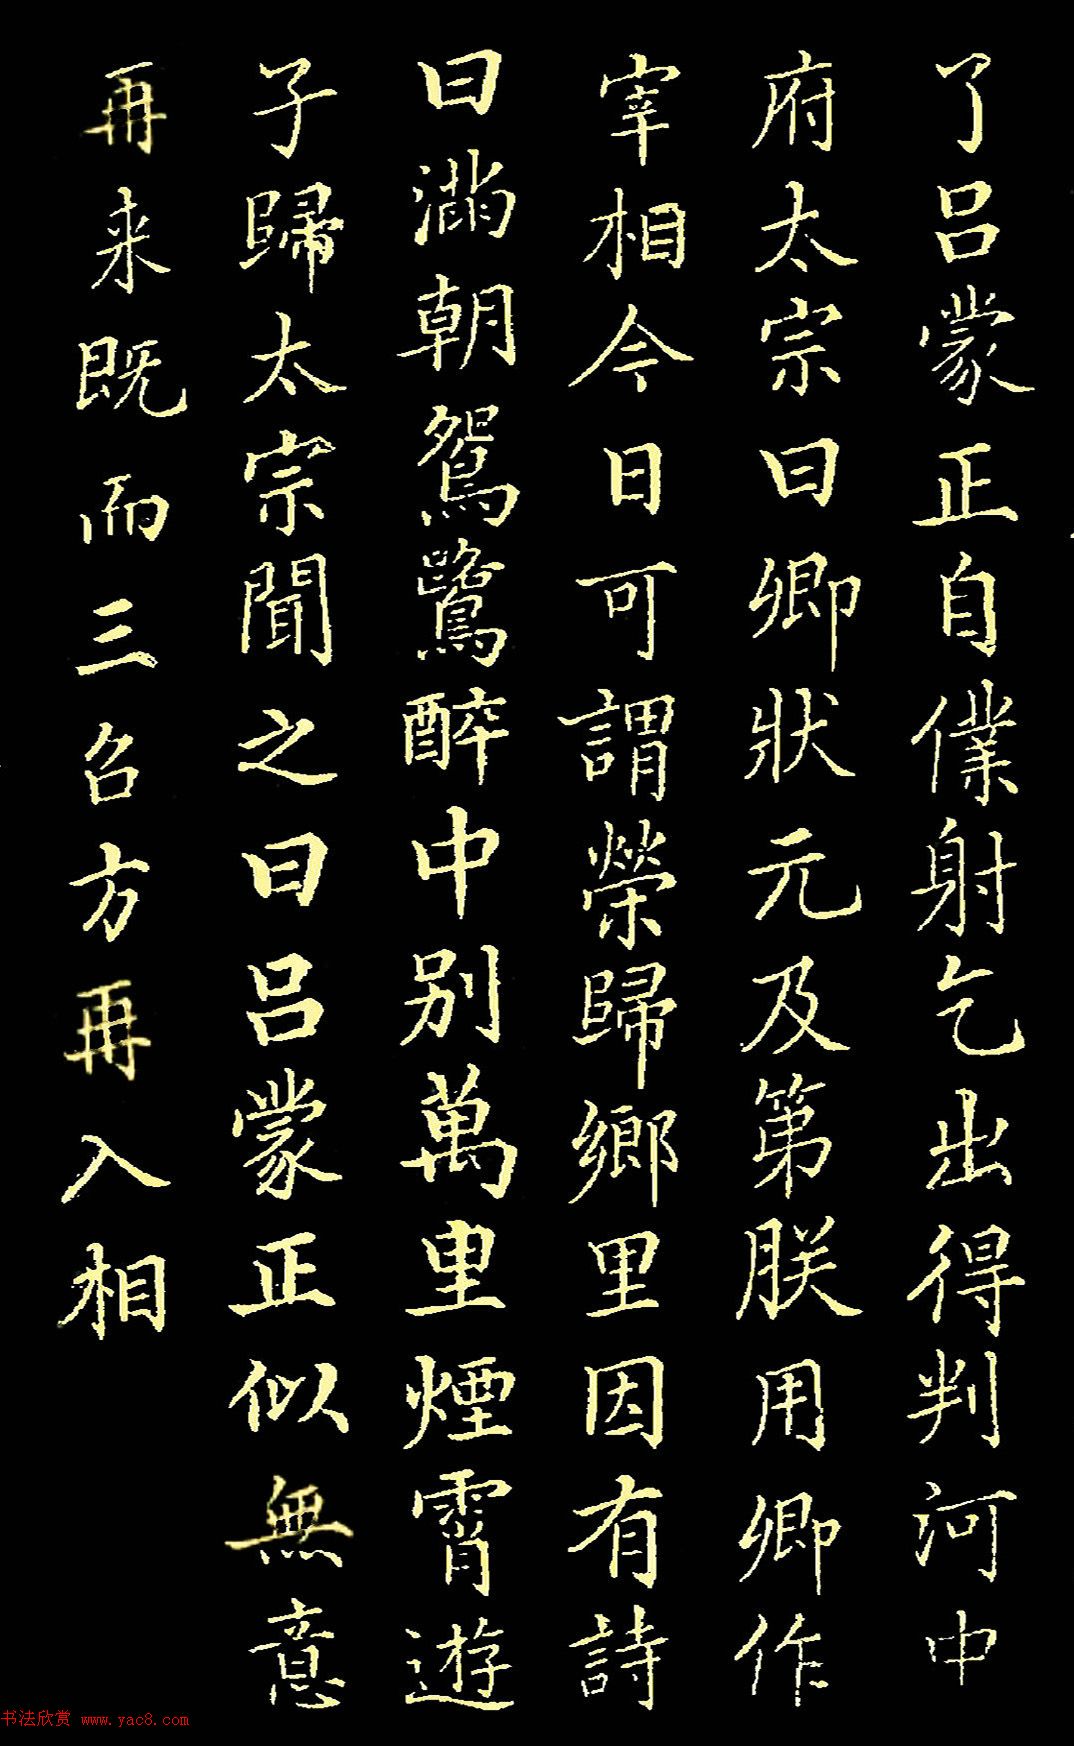 了吕蒙正自僕射乞出得判河中
府太宗曰卿狀元及第朕用卿作
宰相今日可謂榮歸鄉里因有詩
曰滿朝鴛鷺醉中别萬里煙霄遊
子歸太宗聞之曰吕蒙正似無意
再来既而三召方再入相
书法欣赏 www.yac8.com